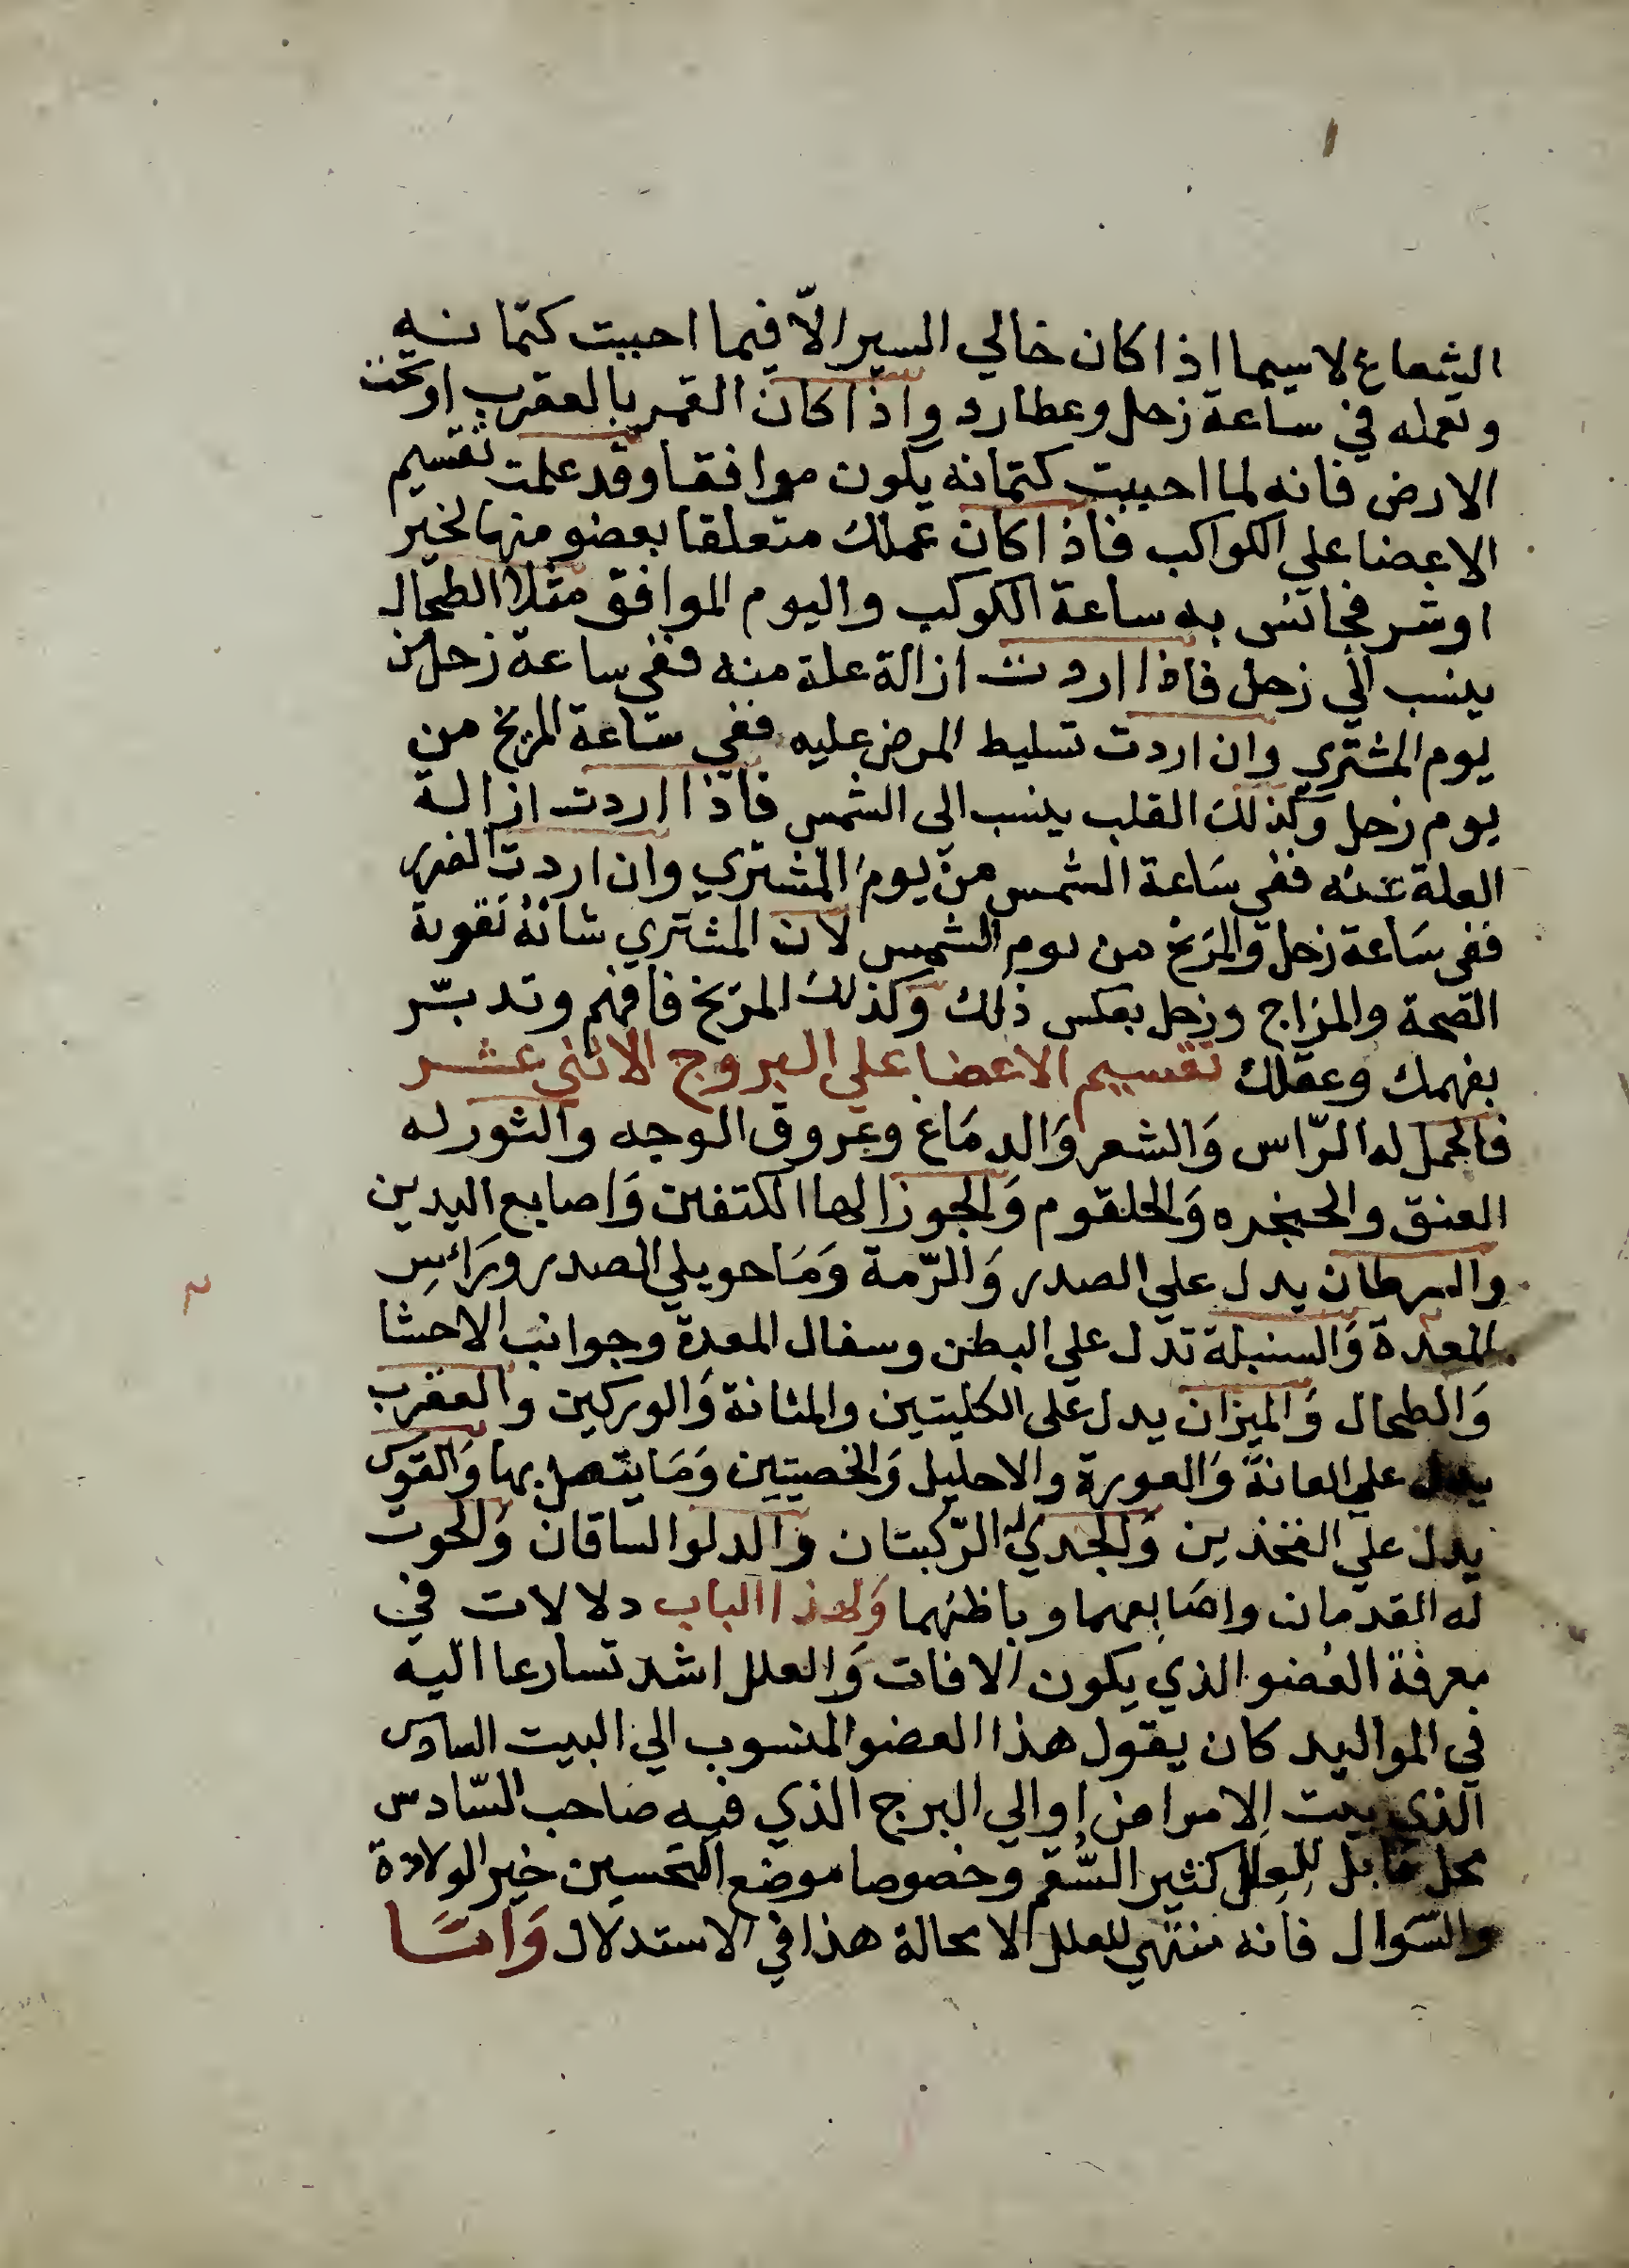 الشعاع لاسيما اذا كان خالي السير الّا فيما احببت كتمانه
وتعمله في ساعة زحل وعطارد واذا كان القمر بالعقرب او تحت
الارض فانه لما احببت كتمانه يكون موافقا وقد علمت تقسيم
الاعضا علي الكواكب فاذا كان عملك متعلقا بعضو منها لخير
او شر فجانس به ساعة الكوكب واليوم الموافق مثلا الطحال
ينسب الي زحل فاذا اردت ازالة علة منه ففي ساعة زحل من
يوم المشتري وان اردت تسليط المرض عليه ففي ساعة المريخ من
يوم زحل وكذلك القلب ينسب الى الشمس فاذا اردت ازالة
العلة عنه ففي سَاعة الشمس من يوم المشتري وان اردت الضرر
ففي سَاعة زحل والمريخ من يوم الشمس لان المشتري شانه تقوية
الصحة والمزاج وزحل بعكس ذلك وكذلك المريخ فافهم وتدبّر
بفهمك وعقلك تقسيم الاعضا علي البروج الاثني عشر
فالحمل له الرّاس وَالشعر وَالدمَاغ وعروق الوجه والثور له
العنق والحنجره وَالحلقوم وَالجوزا لها الكتفين وَاصابع اليدين
والسرطان يدل علي الصدر وَالرّمة وَمَا حويلي الصدر ورَائس
المعدة وَالسنبلة تدل علي البطن وسفال المعدة وجوانب الاحشا
وَالطحال وَالميزان يدل على الكليتين والمثانة وَالوركين والعقرب
يدل علي العانة وَالعورة والاحليل وَالخصيتين وَمَا يتصل بها وَالقوس
يدل علي الفخذين وَالجدي له الرّكبتان وَالدلو الساقان وَالحوت
له القدمان واصَابعهما وباطنهما وَلهذا الباب دلالات في
معرفة العُضو الذي يكون الافات وَالعلل اشد تسارعا اليه
في المواليد كان يقول هذا العضو المنسوب الي البيت السادس
الذي بيت الامراض او الي البرج الذي فيه صاحب السّادس
محل قابل للعِلل كثير السُّقم وخصوصا موضع النحسين خير الولادة
والسّوال فانه منتهي للعلل الا محالة هذا في الاستدلال وَامّا
م